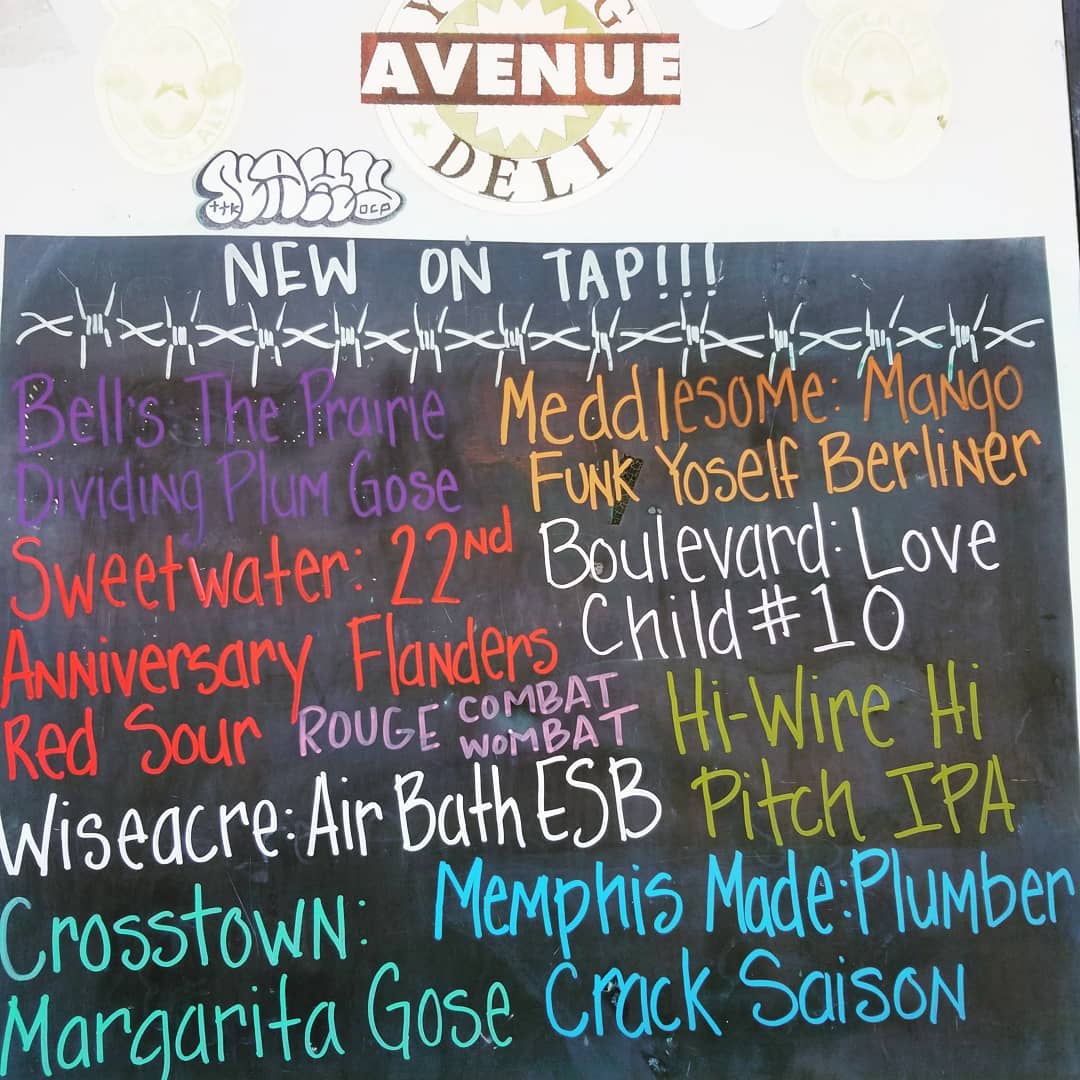 AVENUE
DELI
ttk
OCP
NEW ON TAP!!!
Bell's The Prairie
Dividing Plum Gose
Meddlesome: Mango
Funk Yoself Berliner
Sweetwater: 22nd
Anniversary Flanders
Red Sour
Boulevard: Love
Child #10
ROUGE COMBAT
WOMBAT
Hi-Wire Hi
Pitch IPA
Wiseacre: Air Bath ESB
Crosstown:
Margarita Gose
Memphis Made: Plumber
Crack Saison